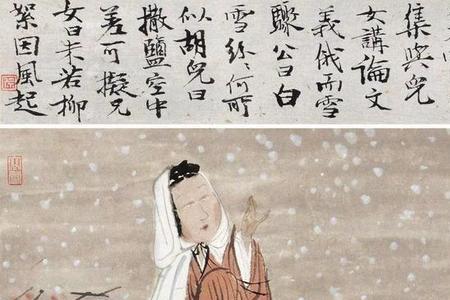 集與兒
女講論文
義俄而雪
驟公曰白
雪紛々何所
似胡兒曰
撒鹽空中
差可擬兄
女曰未若柳
絮因風起